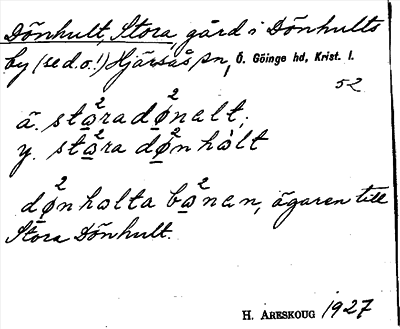 Dönhult, Stora, gård i Dönhults
by (se d.o.!) Hjärsås sn, Ö. Göinge hd, Krist. l.
52
ä. stɑ̤²radø̤²nalt;
y. stɑ̤²ra dø̤²nhàlt
dø̤²nhalta bɑ̤²nan, ägaren till
Stora Dönhult.
H. ARESKOUG 1927